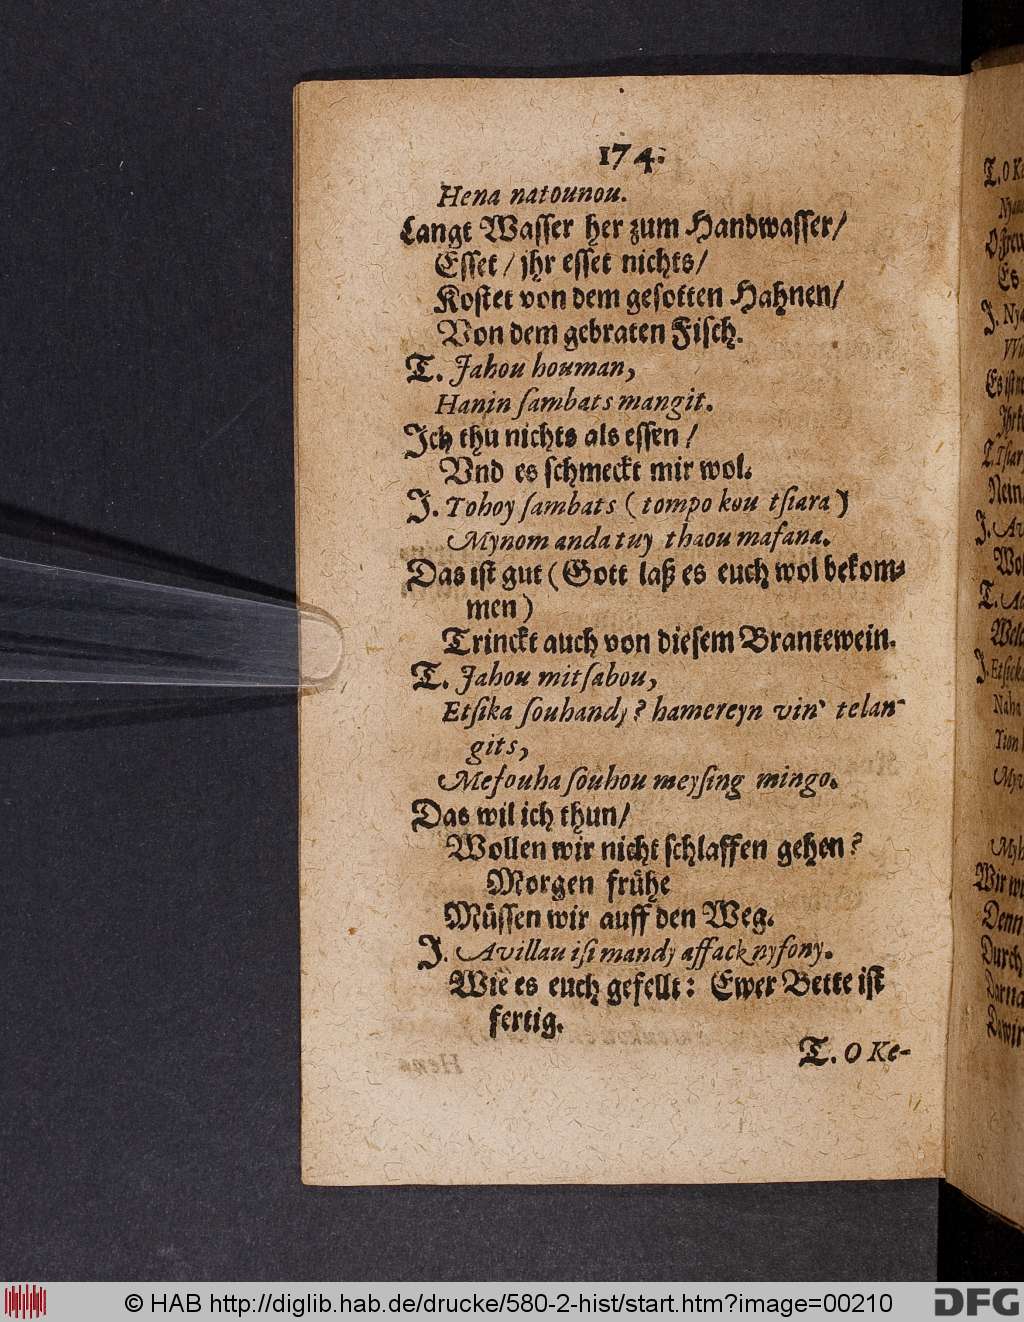 174.
Hena natounou.
Langt Wasser her zum Handwasser/
Esset/ jhr esset nichts/
Kostet von dem gesotten Hahnen/
Von dem gebraten Fisch.
T. Jahou houman,
Hanin ſambats mangit.
Ich thu nichts als essen/
Vnd es schmeckt mir wol.
J. Tohoy ſambats (tompo kou tſiara)
Mynom anda tuy thaou mafana.
Das ist gut (Gott laß es euch wol bekom-
men)
Trinckt auch von diesem Brantewein.
T. Jahou mitſabou,
Etſika ſouhandj? hamereyn vin' telan-
gits,
Meſouha ſouhou meyſing mingo.
Das wil ich thun/
Wollen wir nicht schlaffen gehen?
Morgen frühe
Müssen wir auff den Weg.
J. Avillau iſi mandj affack nyfony.
Wie es euch gefellt: Ewer Bette ist
fertig.
T. O Ke-
T. O Ke
Es
J. Nya
Es ist
Nein
Wol
Wir
Denn
Durch
© HAB http://diglib.hab.de/drucke/580-2-hist/start.htm?image=00210
DFG